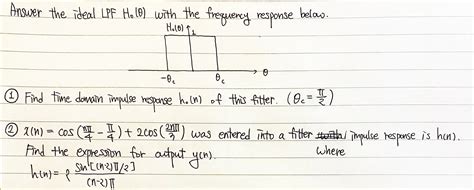 Answer the ideal LPF H₀(θ) with the frequency response below.
H₀(θ)
1
-θc θc θ
① Find time domain impulse response h₀(n) of this fitter. (θc = π/2)
② x(n) = cos(nπ/4 - π/4) + 2cos(2nπ/3) was entered into a fitter impulse response is h(n).
Find the expression for output y(n). where
h(n) = { sin[(n-2)π/2] / (n-2)π